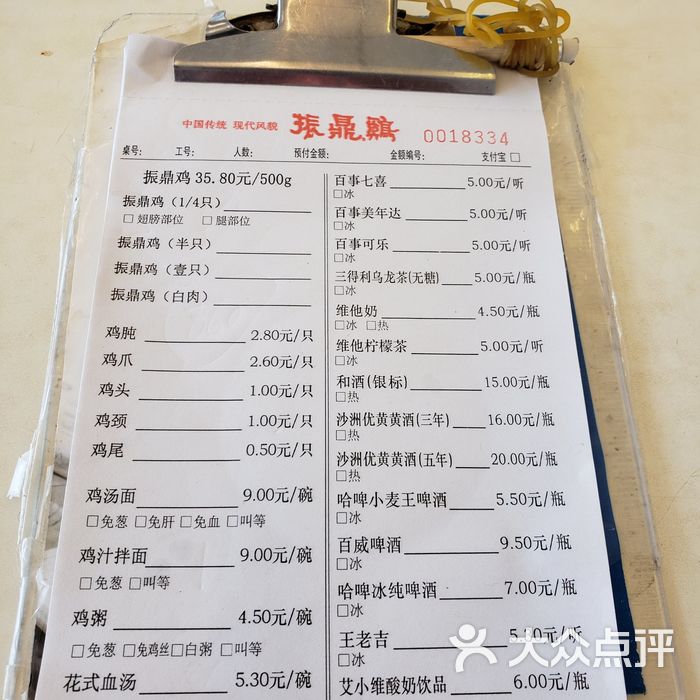 中国传统 现代风貌 振鼎鸡 0018334
桌号: 工号: 人数: 预付金额: 金额编号: 支付宝 □
振鼎鸡 35.80元/500g
振鼎鸡（1/4只）
□ 翅膀部位 □ 腿部位
振鼎鸡（半只）
振鼎鸡（壹只）
振鼎鸡（白肉）
鸡肫 2.80元/只
鸡爪 2.60元/只
鸡头 1.00元/只
鸡颈 1.00元/只
鸡尾 0.50元/只
鸡汤面 9.00元/碗
□免葱 □免肝 □免血 □叫等
鸡汁拌面 9.00元/碗
□免葱 □叫等
鸡粥 4.50元/碗
□免葱 □免鸡丝 □白粥 □叫等
花式血汤 5.30元/碗
百事七喜 5.00元/听
□冰
百事美年达 5.00元/听
□冰
百事可乐 5.00元/听
□冰
三得利乌龙茶(无糖) 5.00元/瓶
□冰
维他奶 4.50元/瓶
□冰 □热
维他柠檬茶 5.00元/听
□冰
和酒(银标) 15.00元/瓶
□热
沙洲优黄黄酒(三年) 16.00元/瓶
□热
沙洲优黄黄酒(五年) 20.00元/瓶
□热
哈啤小麦王啤酒 5.50元/瓶
□冰
百威啤酒 9.50元/瓶
□冰
哈啤冰纯啤酒 7.00元/瓶
□冰
王老吉 元/听
□冰
艾小维酸奶饮品 6.00元/瓶
大众点评